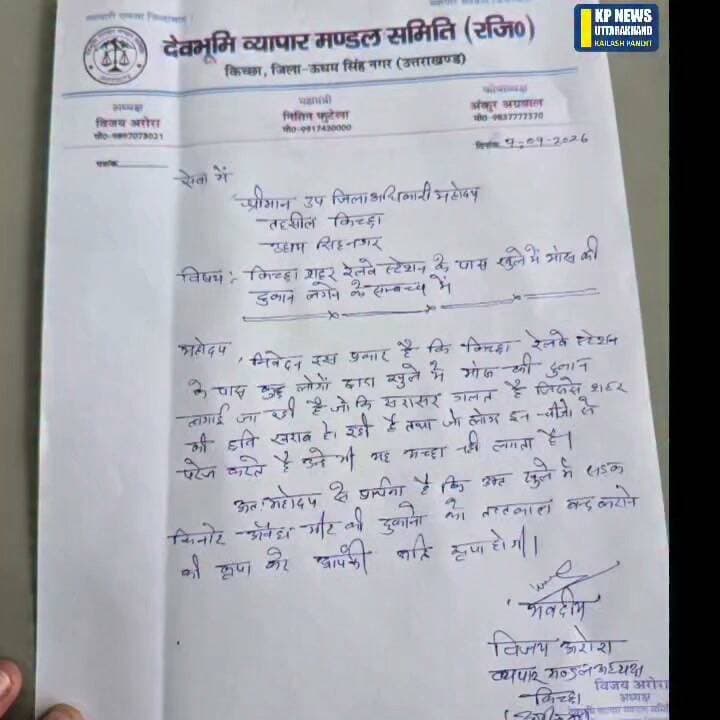 KP NEWS
UTTARAKHAND
KAILASH PANDIT
देवभूमि व्यापार मण्डल समिति (रजि०)
किच्छा, जिला-ऊधम सिंह नगर (उत्तराखण्ड)
अध्यक्ष
विजय अरोरा
मो०-9897073021
महामंत्री
नितिन फुटेला
मो०-9917430000
कोषाध्यक्ष
अंकुर अग्रवाल
मो०-9837777370
दिनांक 9-09-2026
सेवा में
श्रीमान उप जिलाअधिकारी महोदय
तहसील किच्छा
उधम सिंह नगर
विषय :- किच्छा शहर रेलवे स्टेशन के पास खुले में मांस की
दुकान लगने के सम्बन्ध में
महोदय, निवेदन इस प्रकार है कि किच्छा रेलवे स्टेशन
के पास कुछ लोगों द्वारा खुले में मांस की दुकान
लगाई जा रही है जो कि सरासर गलत है जिससे शहर
की छवि खराब हो रही है तथा जो लोग इन चीजो से
परेज करते है उन्हे भी यह अच्छा नही लगता है।
अतः महोदय से प्रार्थना है कि खुले में सडक
किनारे अवैध मीट की दुकानो को तत्काल बन्द कराने
की कृपा करे आपकी अति कृपा होगी।
भवदीय
विजय अरोरा
व्यापार मण्डल अध्यक्ष
किच्छा
विजय अरोरा
अध्यक्ष